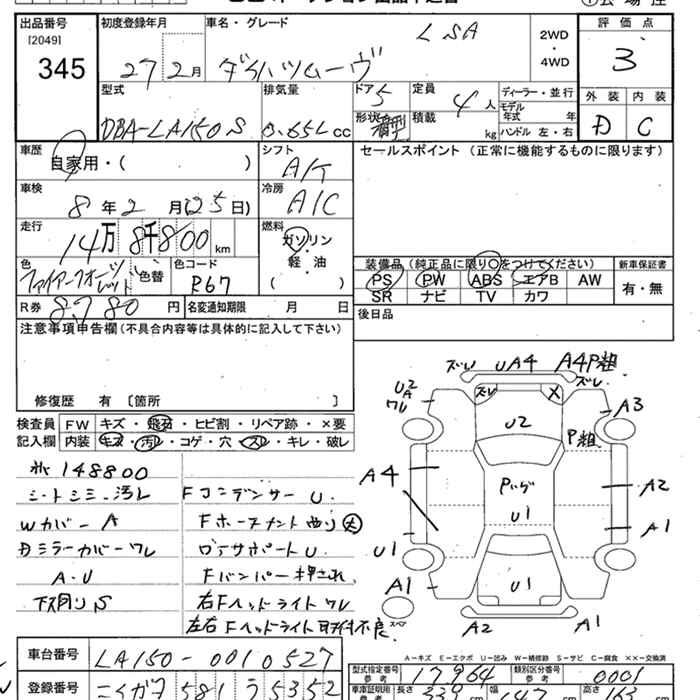 出品番号 初度登録年月 車名・グレード 評価点
[2049] LSA 2WD
345 27 2月 ダイハツムーヴ ・4WD 3
型式 排気量 ドア 5 定員 4人 ディーラー・並行 外装 内装
DBA-LA150S 0.65L cc 形状 積載 kg モデル年式 年 D C
ハンドル 左・右
車歴 シフト セールスポイント (正常に機能するものに限ります)
自家用・( ) A/T
車検 冷房
8年2月(25日) A/C
走行 燃料
14万8千800km ガソリン
色 色替 色コード 軽・油 装備品 (純正品に限り○をつけてください) 新車保証書
R67 ( ) PS PW ABS エアB AW 有・無
SR ナビ TV カワ
R券 8980円 名変通知期限 月 日 後日品
注意事項申告欄(不具合内容等は具体的に記入して下さい)
修復歴 有〔箇所 〕
検査員 FW キズ・飛石・ヒビ割・リペア跡・×要
記入欄 内装 キズ・汚レ・コゲ・穴・スレ・キレ・破レ
148800
シートシミ・汚レ FコンデンサーU.
Wカバー A
ミラーカバーワレ ロアサポートU.
A・U Fバンパー押され
下回りS 右Fヘッドライトワレ
左右Fヘッドライト取付不良
ズレ UA4 A4P粗
U2 A ワレ ズレ X ズレ A3
U2 P粗
A4 Pハゲ A2
U1 U1 A1
A1 U1
スペア A2 A1
A-キズ E-エクボ U-凹み W-補修跡 S-サビ C-腐食 ××-交換済
車台番号 LA150-0010527 型式指定番号 参考 17964 類別区分番号 参考 0001
登録番号 ニイガタ 581 う 5352 車車証明用 参考 長さ 339cm 幅 147cm 高さ